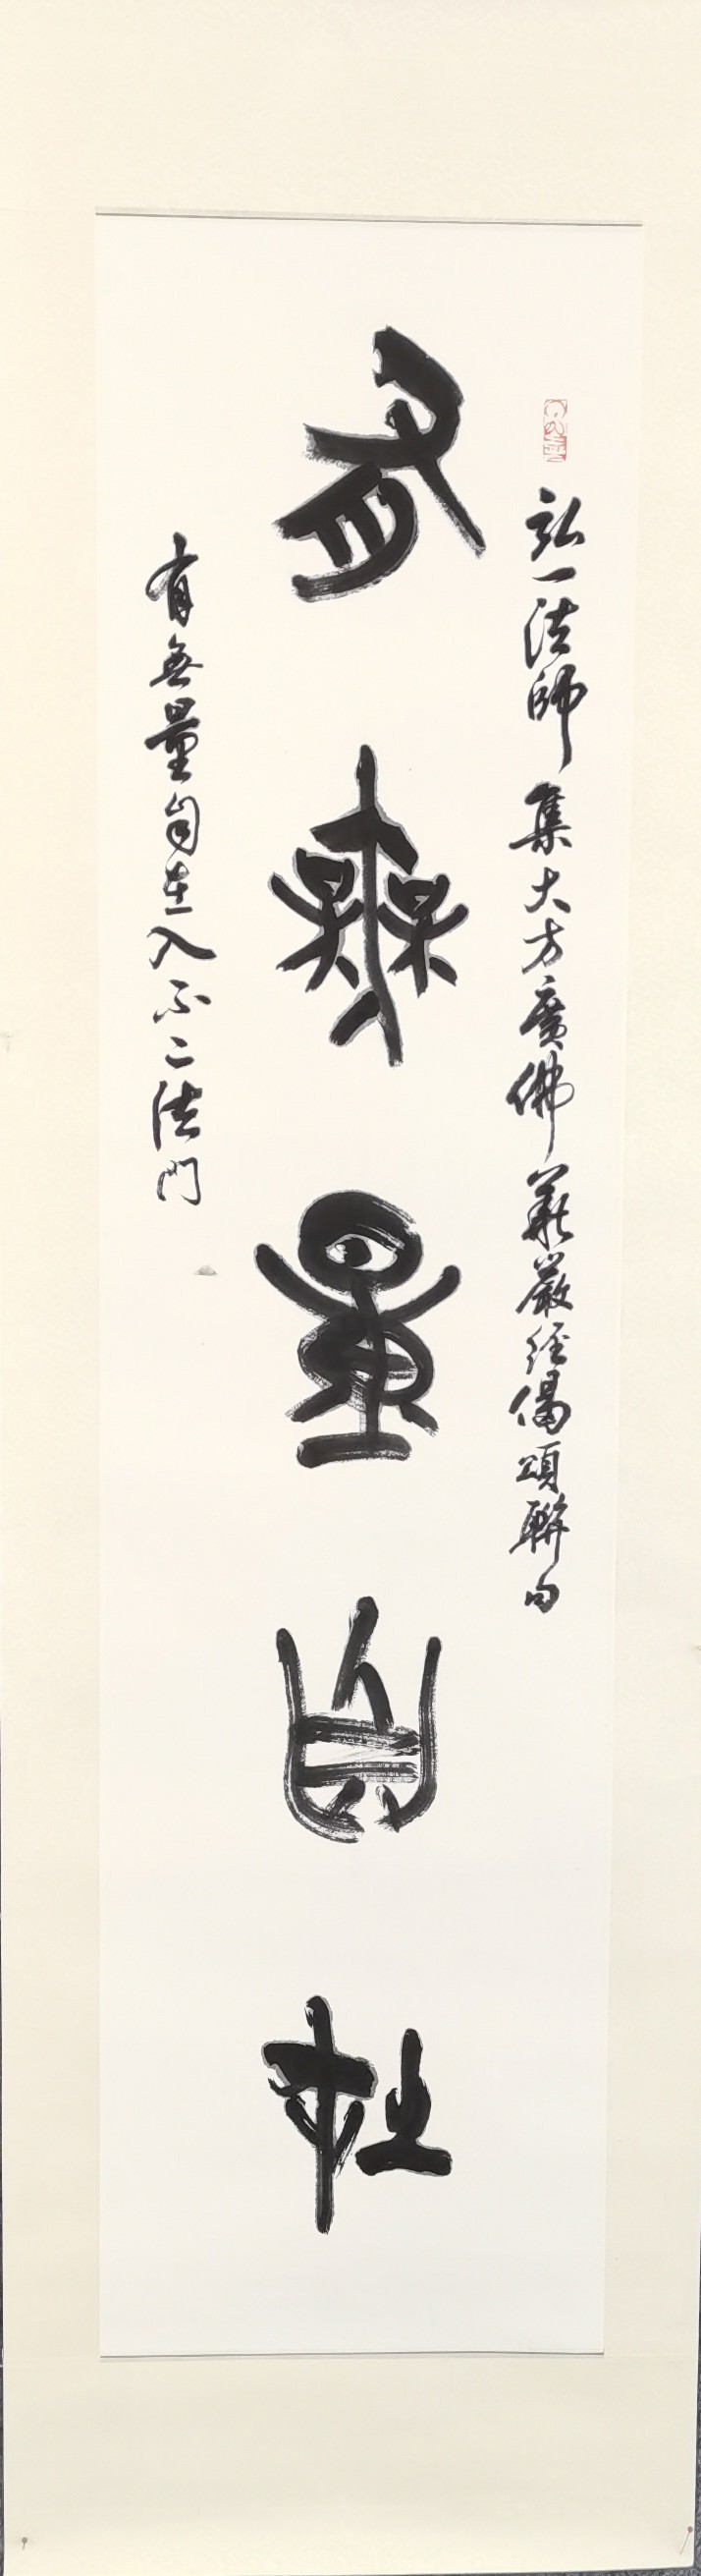 弘一法師集大方廣佛華嚴經偈頌聯句
有無量自在
有無量自在入不二法門